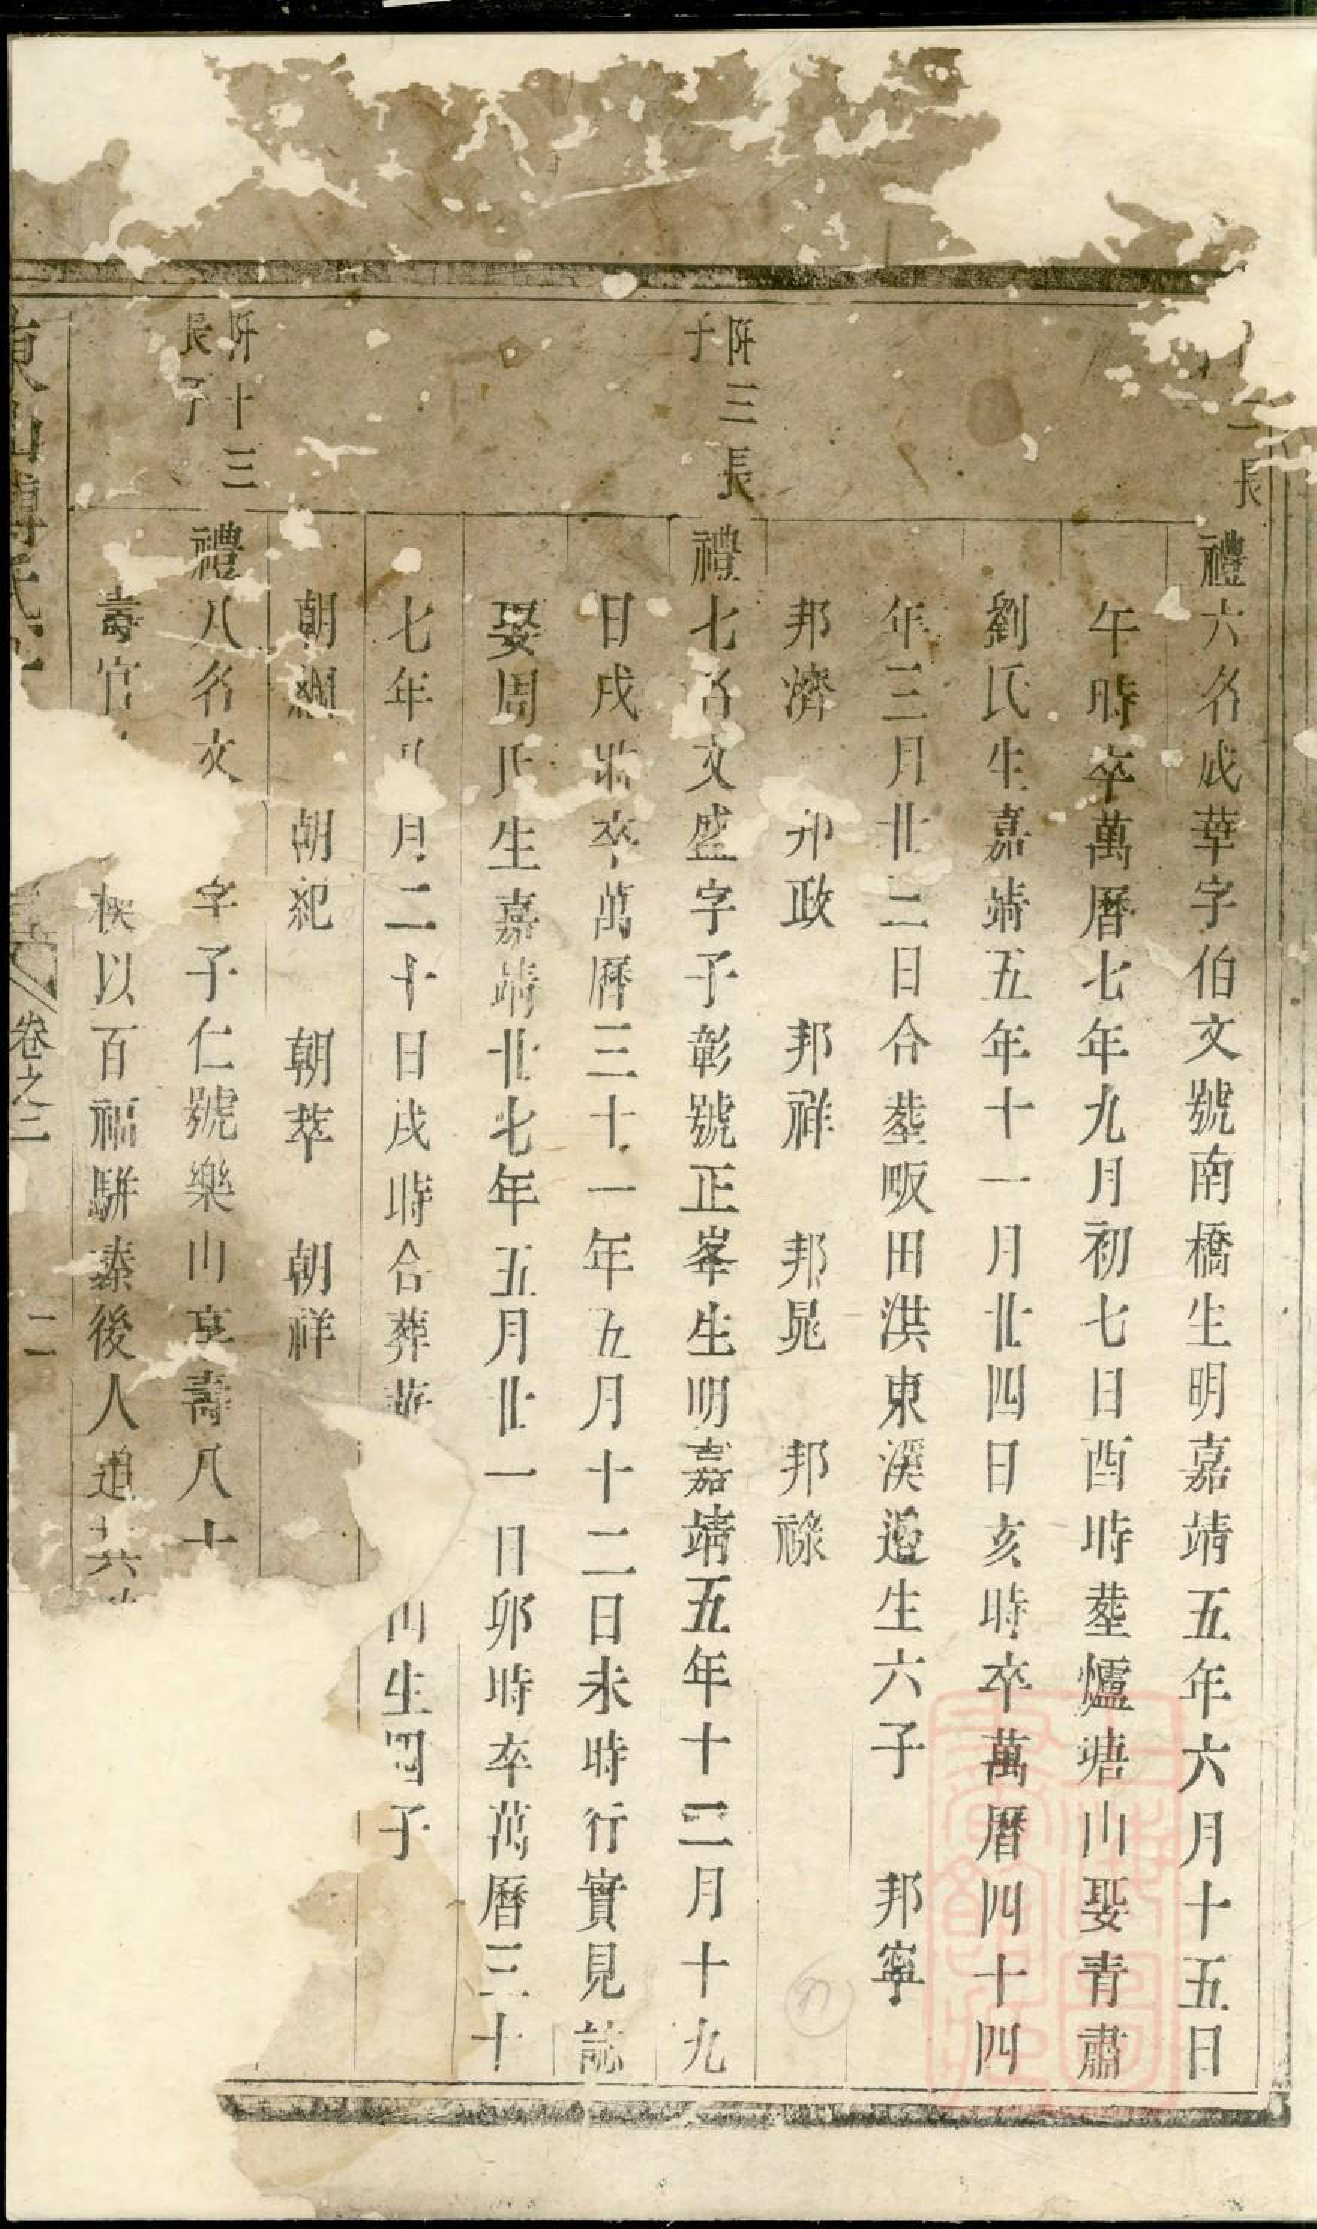 二長
禮六名成華字伯文號南橋生明嘉靖五年六月十五日
午時卒萬曆七年九月初七日酉時塟爐塘山娶青肅
劉氏生嘉靖五年十一月廿四日亥時卒萬曆四十四
年三月廿二日合塟畈田洪東溪邉生六子 邦寧
邦濟 邦政 邦祥 邦晃 邦祿
附三長
子
禮七名文盛字子彰號正峯生明嘉靖五年十二月十九
日戌時卒萬曆三十一年五月十二日未時行實見誌
娶周氏生嘉靖廿七年五月廿一日卯時卒萬曆三十
七年月二十日戌時合葬山生四子
朝綱 朝紀 朝萃 朝祥
附十三
長子
禮八名文字子仁號樂山享壽八十
壽官以百福駢臻後人追其
卷之三
二